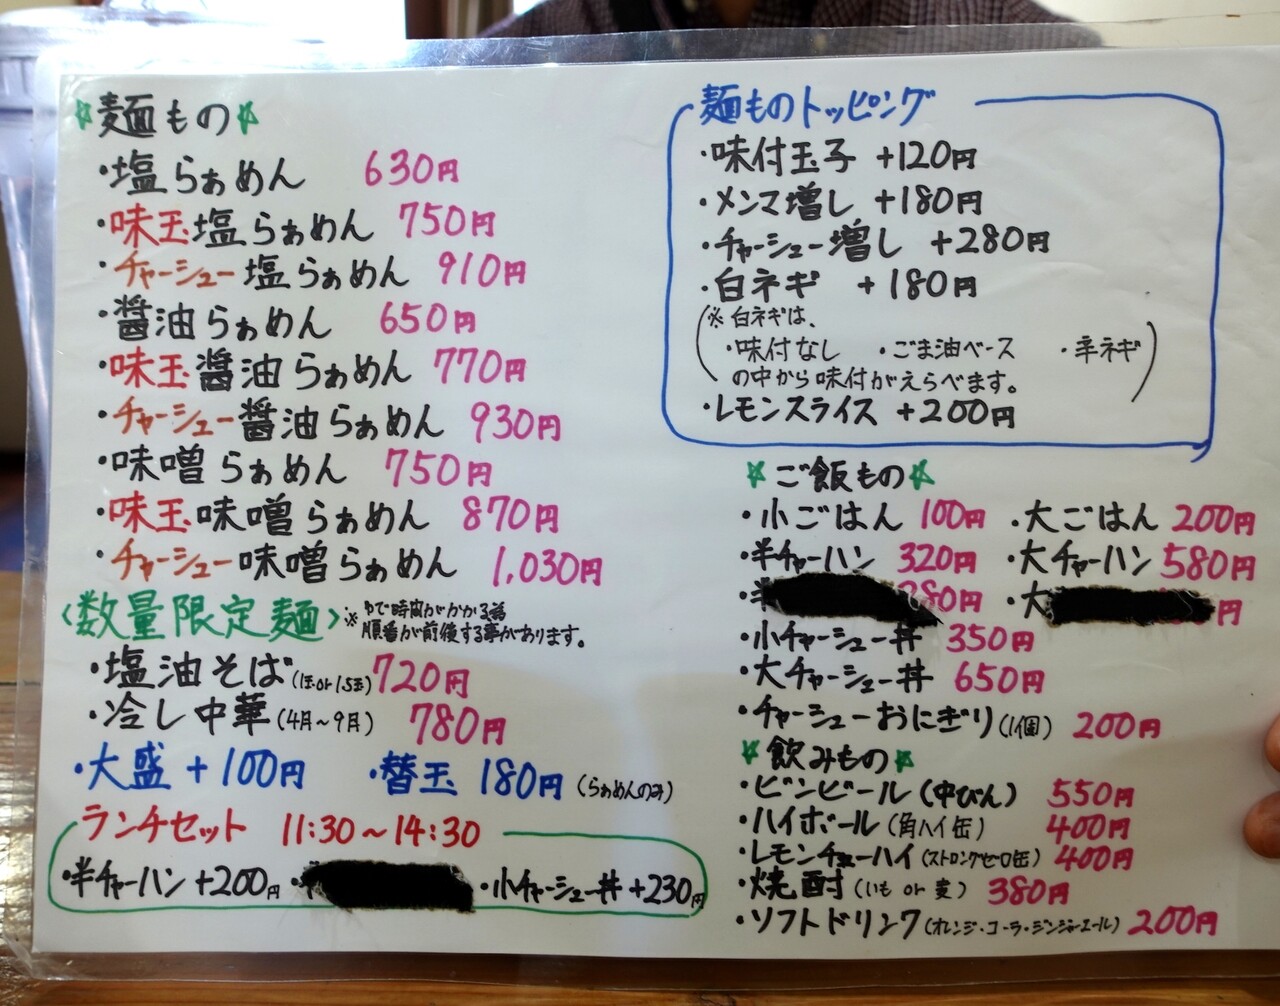 ☆麺もの☆
・塩らぁめん 630円
・味玉塩らぁめん 750円
・チャーシュー塩らぁめん 910円
・醤油らぁめん 650円
・味玉醤油らぁめん 770円
・チャーシュー醤油らぁめん 930円
・味噌らぁめん 750円
・味玉味噌らぁめん 870円
・チャーシュー味噌らぁめん 1,030円
〈数量限定麺〉※ゆで時間がかかる為
順番が前後する事があります。
・塩油そば(1玉or1.5玉) 720円
・冷し中華(4月～9月) 780円
・大盛+100円 ・替玉 180円(らぁめんのみ)
ランチセット 11:30～14:30
・半チャーハン+200円 ・小チャーシュー丼+230円
麺ものトッピング
・味付玉子 +120円
・メンマ増し +180円
・チャーシュー増し +280円
・白ネギ +180円
(※白ネギは、
・味付なし ・ごま油ベース ・辛ネギ
の中から味付がえらべます。)
・レモンスライス +200円
☆ご飯もの☆
・小ごはん 100円 ・大ごはん 200円
・半チャーハン 320円 ・大チャーハン 580円
・半 280円 ・大 円
・小チャーシュー丼 350円
・大チャーシュー丼 650円
・チャーシューおにぎり(1個) 200円
☆飲みもの☆
・ビンビール(中びん) 550円
・ハイボール(角ハイ缶) 400円
・レモンチューハイ(ストロングゼロ缶) 400円
・焼酎(いも or 麦) 380円
・ソフトドリンク(オレンジ・コーラ・ジンジャーエール) 200円